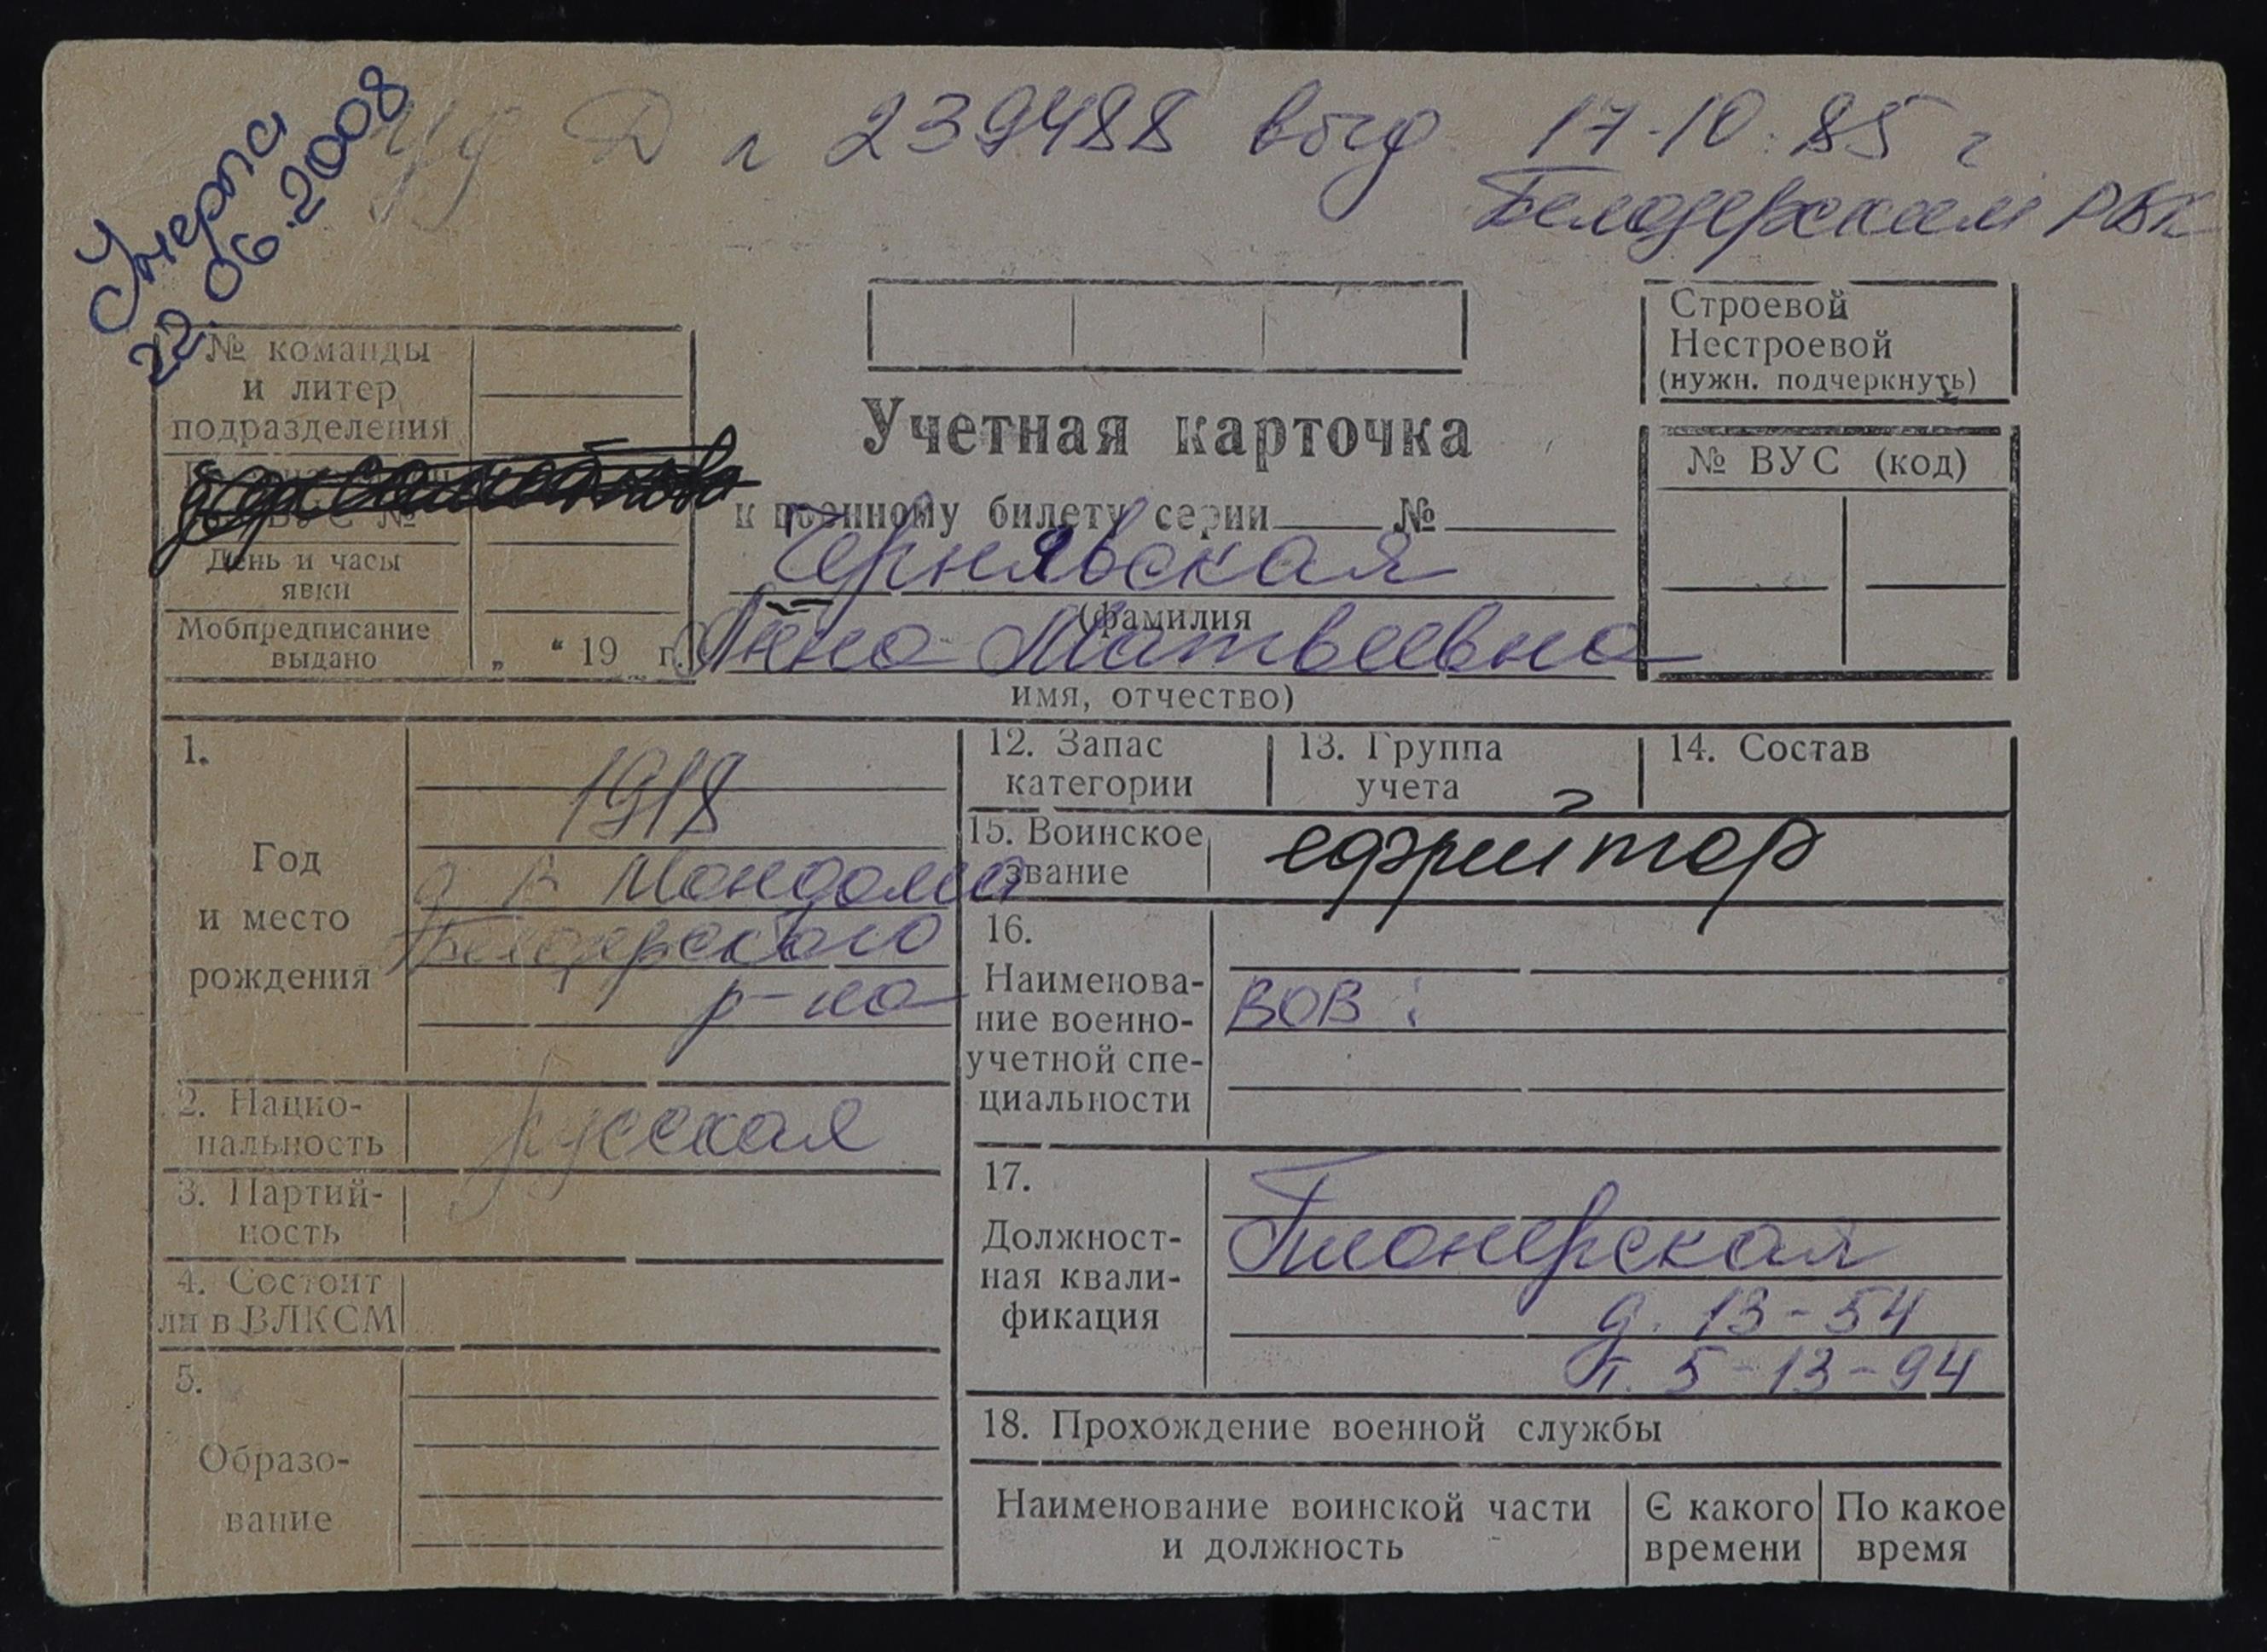 Умерла
22.06.2008
Уд Д № 239488 выд 17-10.85 г
Белозерским РВК
Строевой
Нестроевой
(нужн. подчеркнуть)
№ команды
и литер
подразделения
ВУС №
День и часы
явки
Мобпредписание
выдано
„ “ 19 г.
Учетная карточка
к военному билету серии №
Чернявская
(фамилия
Анна Матвеевна
имя, отчество)
№ ВУС (код)
1.
Год
и место
рождения
1918
д Мондома
Белозерского
р-на
2. Нацио-
нальность
русская
3. Партий-
ность
4. Состоит
ли в ВЛКСМ
5.
Образо-
вание
12. Запас
категории
13. Группа
учета
14. Состав
15. Воинское
звание
ефрейтор
16.
Наименова-
ние военно-
учетной спе-
циальности
ВОВ:
17.
Должност-
ная квали-
фикация
Пионерская
д. 13-54
т. 5-13-94
18. Прохождение военной службы
Наименование воинской части
и должность
С какого
времени
По какое
время